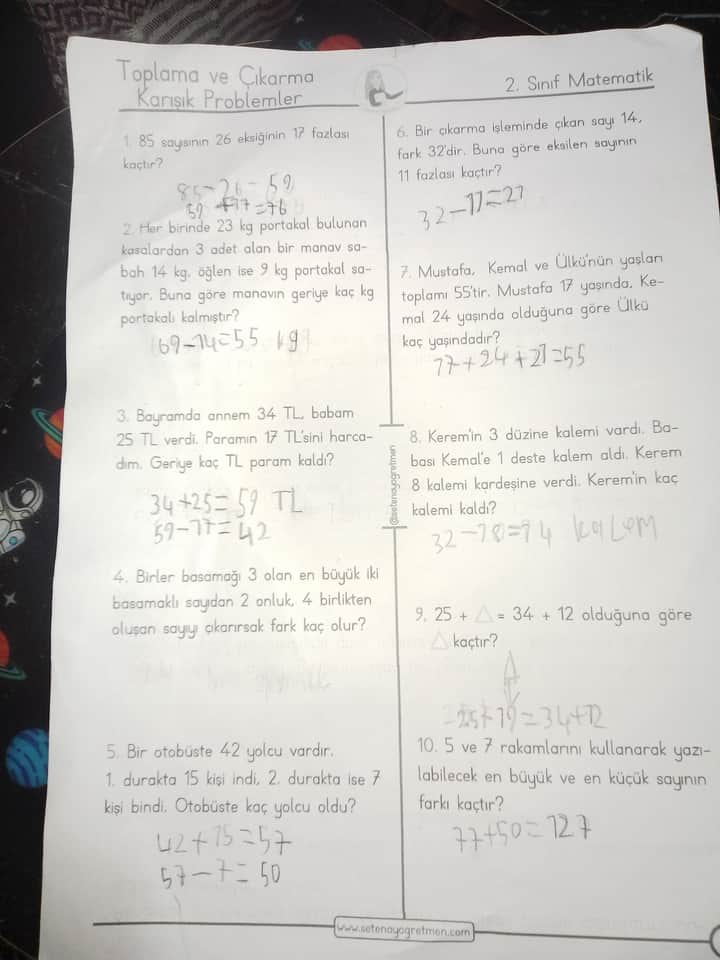 Toplama ve Çıkarma
Karışık Problemler
2. Sınıf Matematik
1. 85 sayısının 26 eksiğinin 17 fazlası
kaçtır?
85-26=59
59+17=76
2. Her birinde 23 kg portakal bulunan
kasalardan 3 adet alan bir manav sa-
bah 14 kg, öğlen ise 9 kg portakal sa-
tıyor. Buna göre manavın geriye kaç kg
portakalı kalmıştır?
69-14=55 kg
3. Bayramda annem 34 TL, babam
25 TL verdi. Paramın 17 TL'sini harca-
dım. Geriye kaç TL param kaldı?
34+25=59 TL
59-17=42
4. Birler basamağı 3 olan en büyük iki
basamaklı sayıdan 2 onluk, 4 birlikten
oluşan sayıyı çıkarırsak fark kaç olur?
5. Bir otobüste 42 yolcu vardır.
1. durakta 15 kişi indi, 2. durakta ise 7
kişi bindi. Otobüste kaç yolcu oldu?
42+15=57
57-7=50
@setenayogretmen
6. Bir çıkarma işleminde çıkan sayı 14,
fark 32'dir. Buna göre eksilen sayının
11 fazlası kaçtır?
32-11=21
7. Mustafa, Kemal ve Ülkü'nün yaşları
toplamı 55'tir. Mustafa 17 yaşında, Ke-
mal 24 yaşında olduğuna göre Ülkü
kaç yaşındadır?
17+24+21=55
8. Kerem'in 3 düzine kalemi vardı. Ba-
bası Kemal'e 1 deste kalem aldı. Kerem
8 kalemi kardeşine verdi. Kerem'in kaç
kalemi kaldı?
32-18=14 KaLem
9. 25 + △ = 34 + 12 olduğuna göre
△ kaçtır?
25+19=34+12
10. 5 ve 7 rakamlarını kullanarak yazı-
labilecek en büyük ve en küçük sayının
farkı kaçtır?
77+50=127
www.setenayogretmen.com